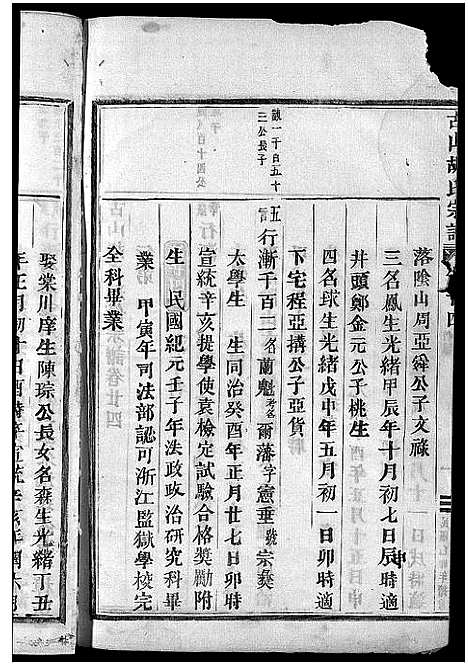 古山胡氏宗譜
落塰山周亞舜公子文祿
三名鳳生光緒甲辰年十月初七日辰時適
井頭鄭金元公子桃生
四名球生光緒戊申年五月初一日卯時適
下宅程亞搆公子亞貨
誠一千百五十
三公長子
五言
行漸千百二名蘭魁爾藩字憲垂號宗彝
太學生 生同治癸酉年正月廿七日卯時
宣統辛亥提學使袁檢定試驗合格獎勵附
生民國紀元壬子年法政政治研究科畢
業 甲寅年司法部認可浙江監獄學校完
全科畢業
娶棠川庠生陳琮公長女名森生光緒丁丑
年正月初十日酉時卒宣統辛亥年閏六月